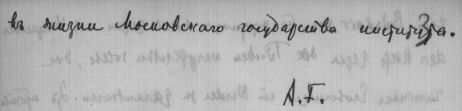 въ жизни Московскаго государства института.
А.Г.